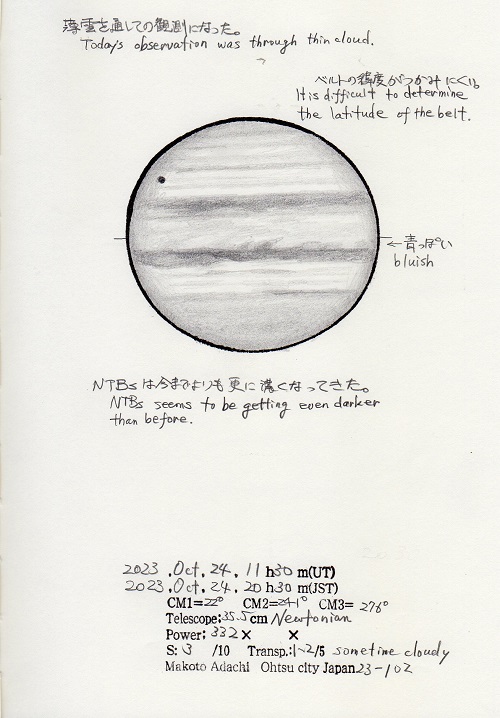 薄雲を通しての観測になった。
Today's observation was through thin cloud.
ベルトの緯度がつかみにくい。
It is difficult to determine
the latitude of the belt.
←青っぽい
bluish
NTBsは今までよりも更に濃くなってきた。
NTBs seems to be getting even darker
than before.
2023.Oct.24.11h30m(UT)
2023.Oct.24.20h30m(JST)
CM1=22° CM2=241° CM3=276°
Telescope:35.5cm Newtonian
Power:332× ×
S:3 /10 Transp.:1~2/5 sometime cloudy
Makoto Adachi Ohtsu city Japan 23-102